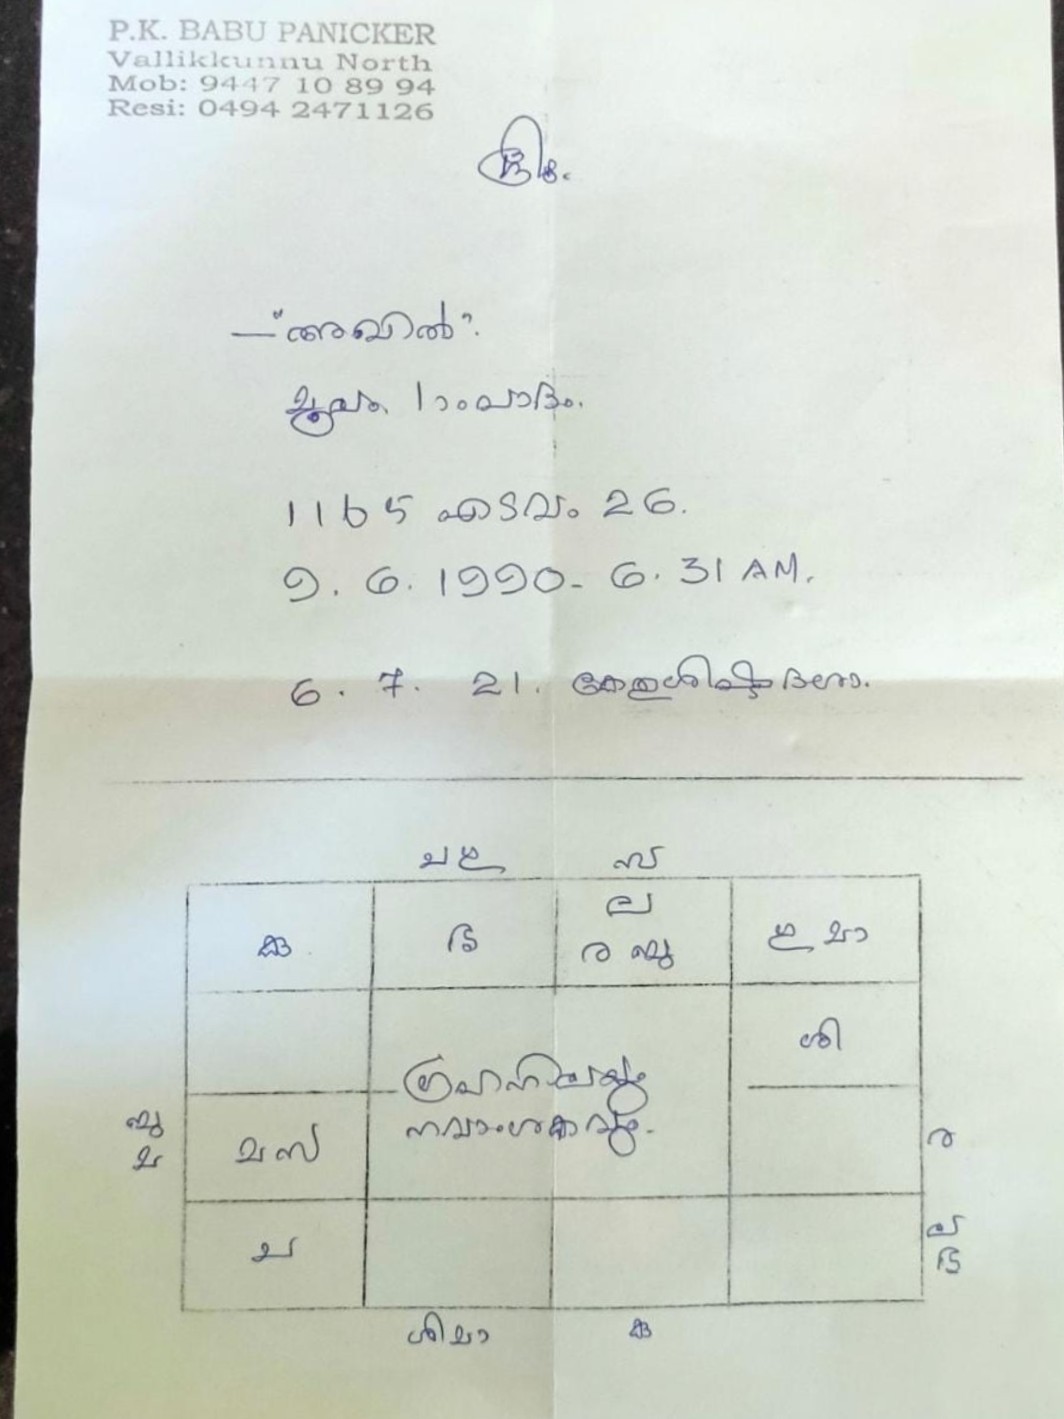 P.K. BABU PANICKER
Vallikkunnu North
Mob: 9447 10 89 94
Resi: 0494 2471126
ശ്രീഃ.
—"അഖിൽ".
മൂലം 1ാംപാദം.
1165 എടവം 26.
9. 6. 1990- 6. 31 AM.
6. 7. 21. കേതുശിഷ്ടദശാ.
സ
ല
കു
ര ബു
മാ
ശി
ഗ്രഹനിലയും
നവാംശകവും.
ബു
മ
മസ
ര
ച
ല
ശിമാ
കു